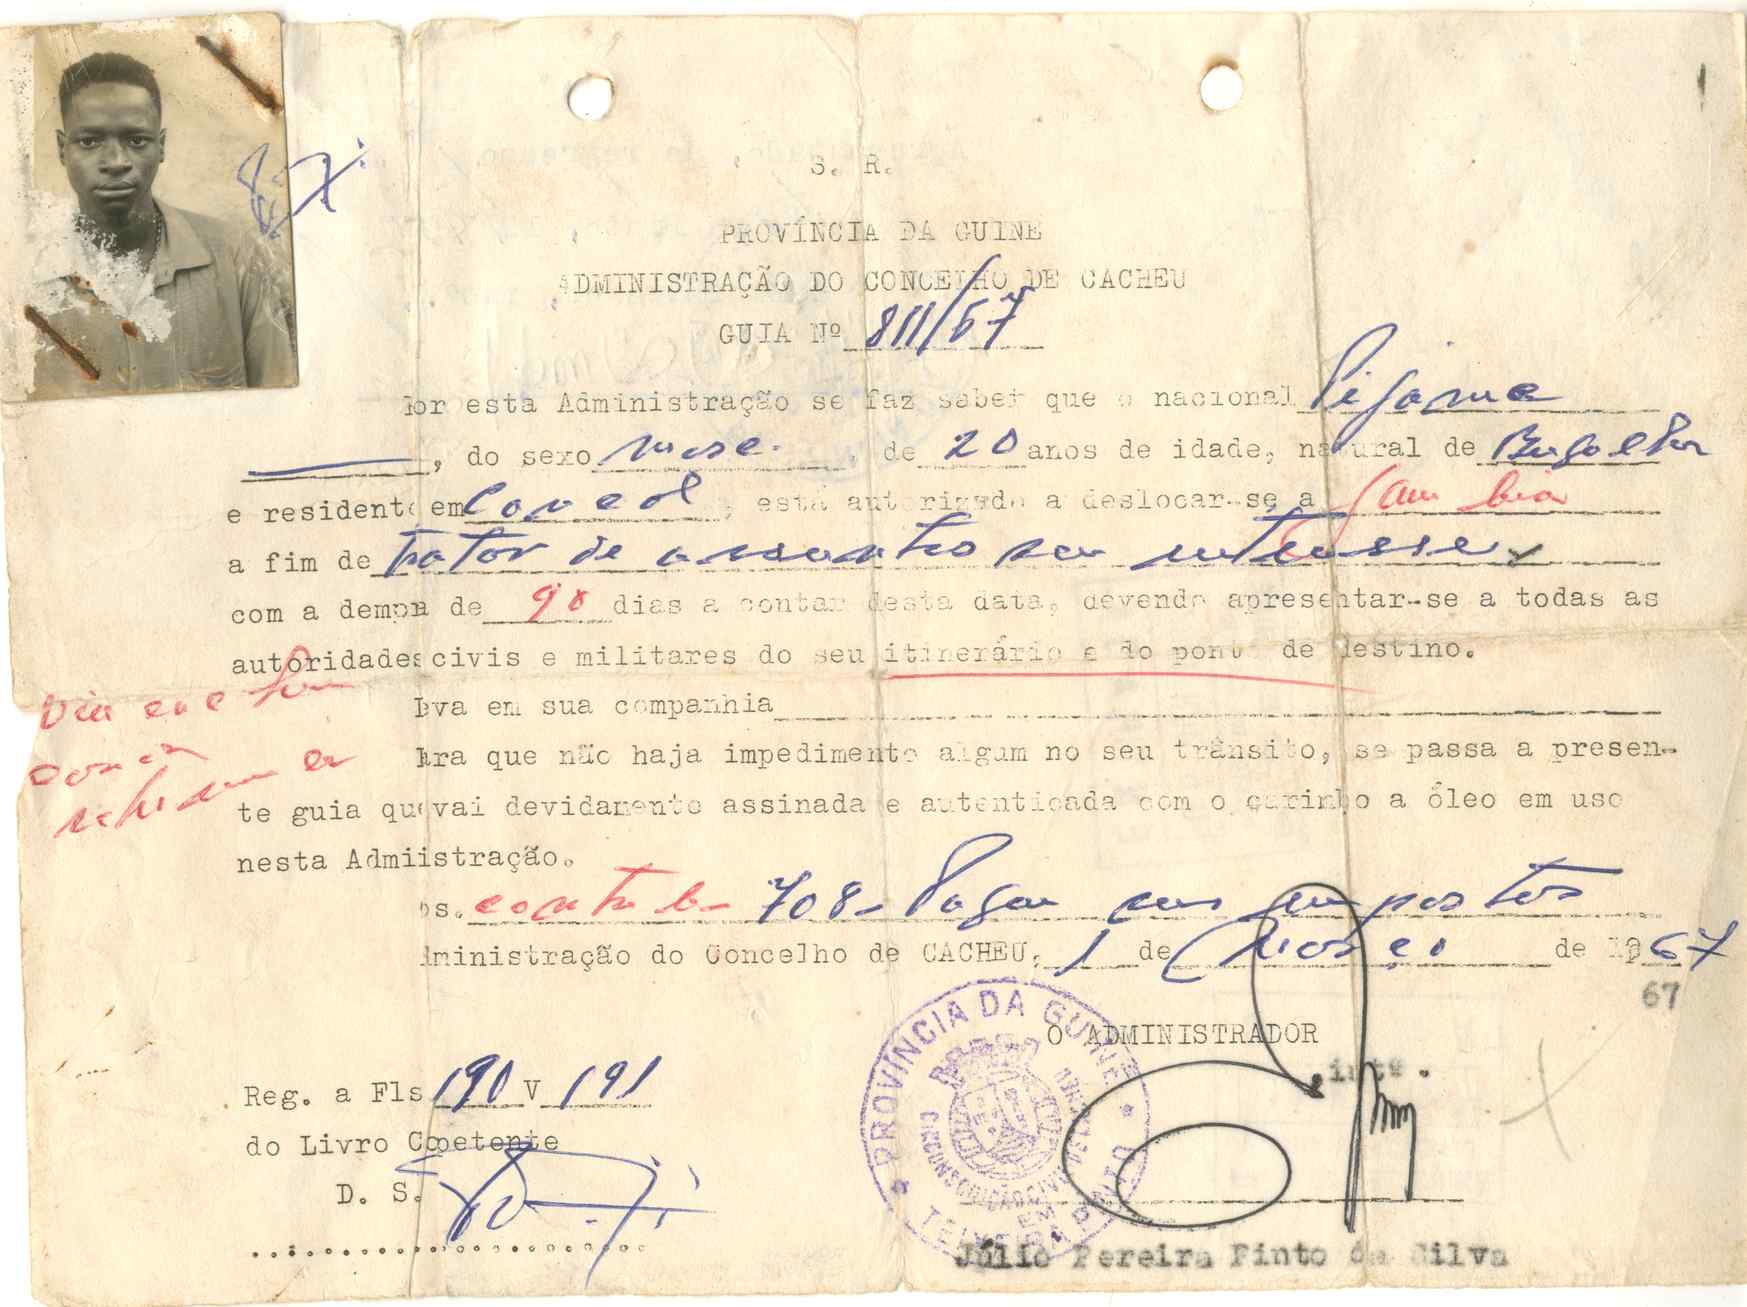 S. R.
PROVÍNCIA DA GUINE
ADMINISTRAÇÃO DO CONCELHO DE CACHEU
GUIA Nº 811/67
Por esta Administração se faz saber que o nacional Pijame
, do sexo masc. de 20 anos de idade, natural de
e residente em , está autorizado a deslocar-se a Gambia
a fim de tratar de assuntos seu interesse
com a demora de 90 dias a contar desta data, devendo apresentar-se a todas as
autoridades civis e militares do seu itinerário e do ponto de destino.
Leva em sua companhia
Para que não haja impedimento algum no seu trânsito, se passa a presen-
te guia que vai devidamente assinada e autenticada com o carimbo a óleo em uso
nesta Admiistração.
Obs. 708- Pagou seus impostos
Administração do Concelho de CACHEU, 1 de Março de 1967
67
O ADMINISTRADOR
, intº.
Reg. a Fls 190 V 191
do Livro Copetente
D. S.
PROVÍNCIA DA GUINÉ
CIRCUNSCRIÇÃO CIVIL
EM
TEIXEIRA PINTO
Júlio Pereira Pinto da Silva